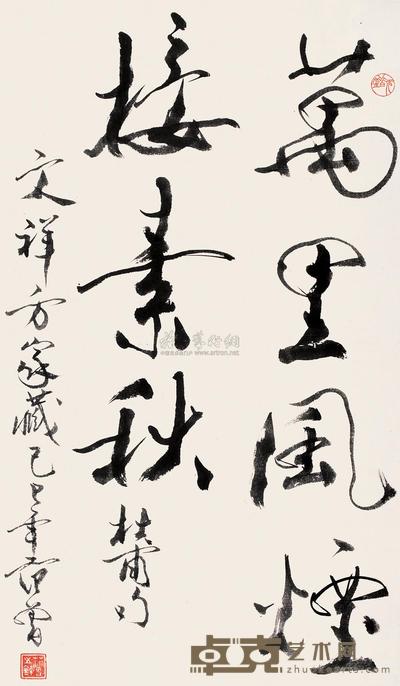 萬里風煙
接素秋
杜甫句
文祥方家藏己巳年范曾
www.artron.net
卓克艺术网
zhuokearts.com